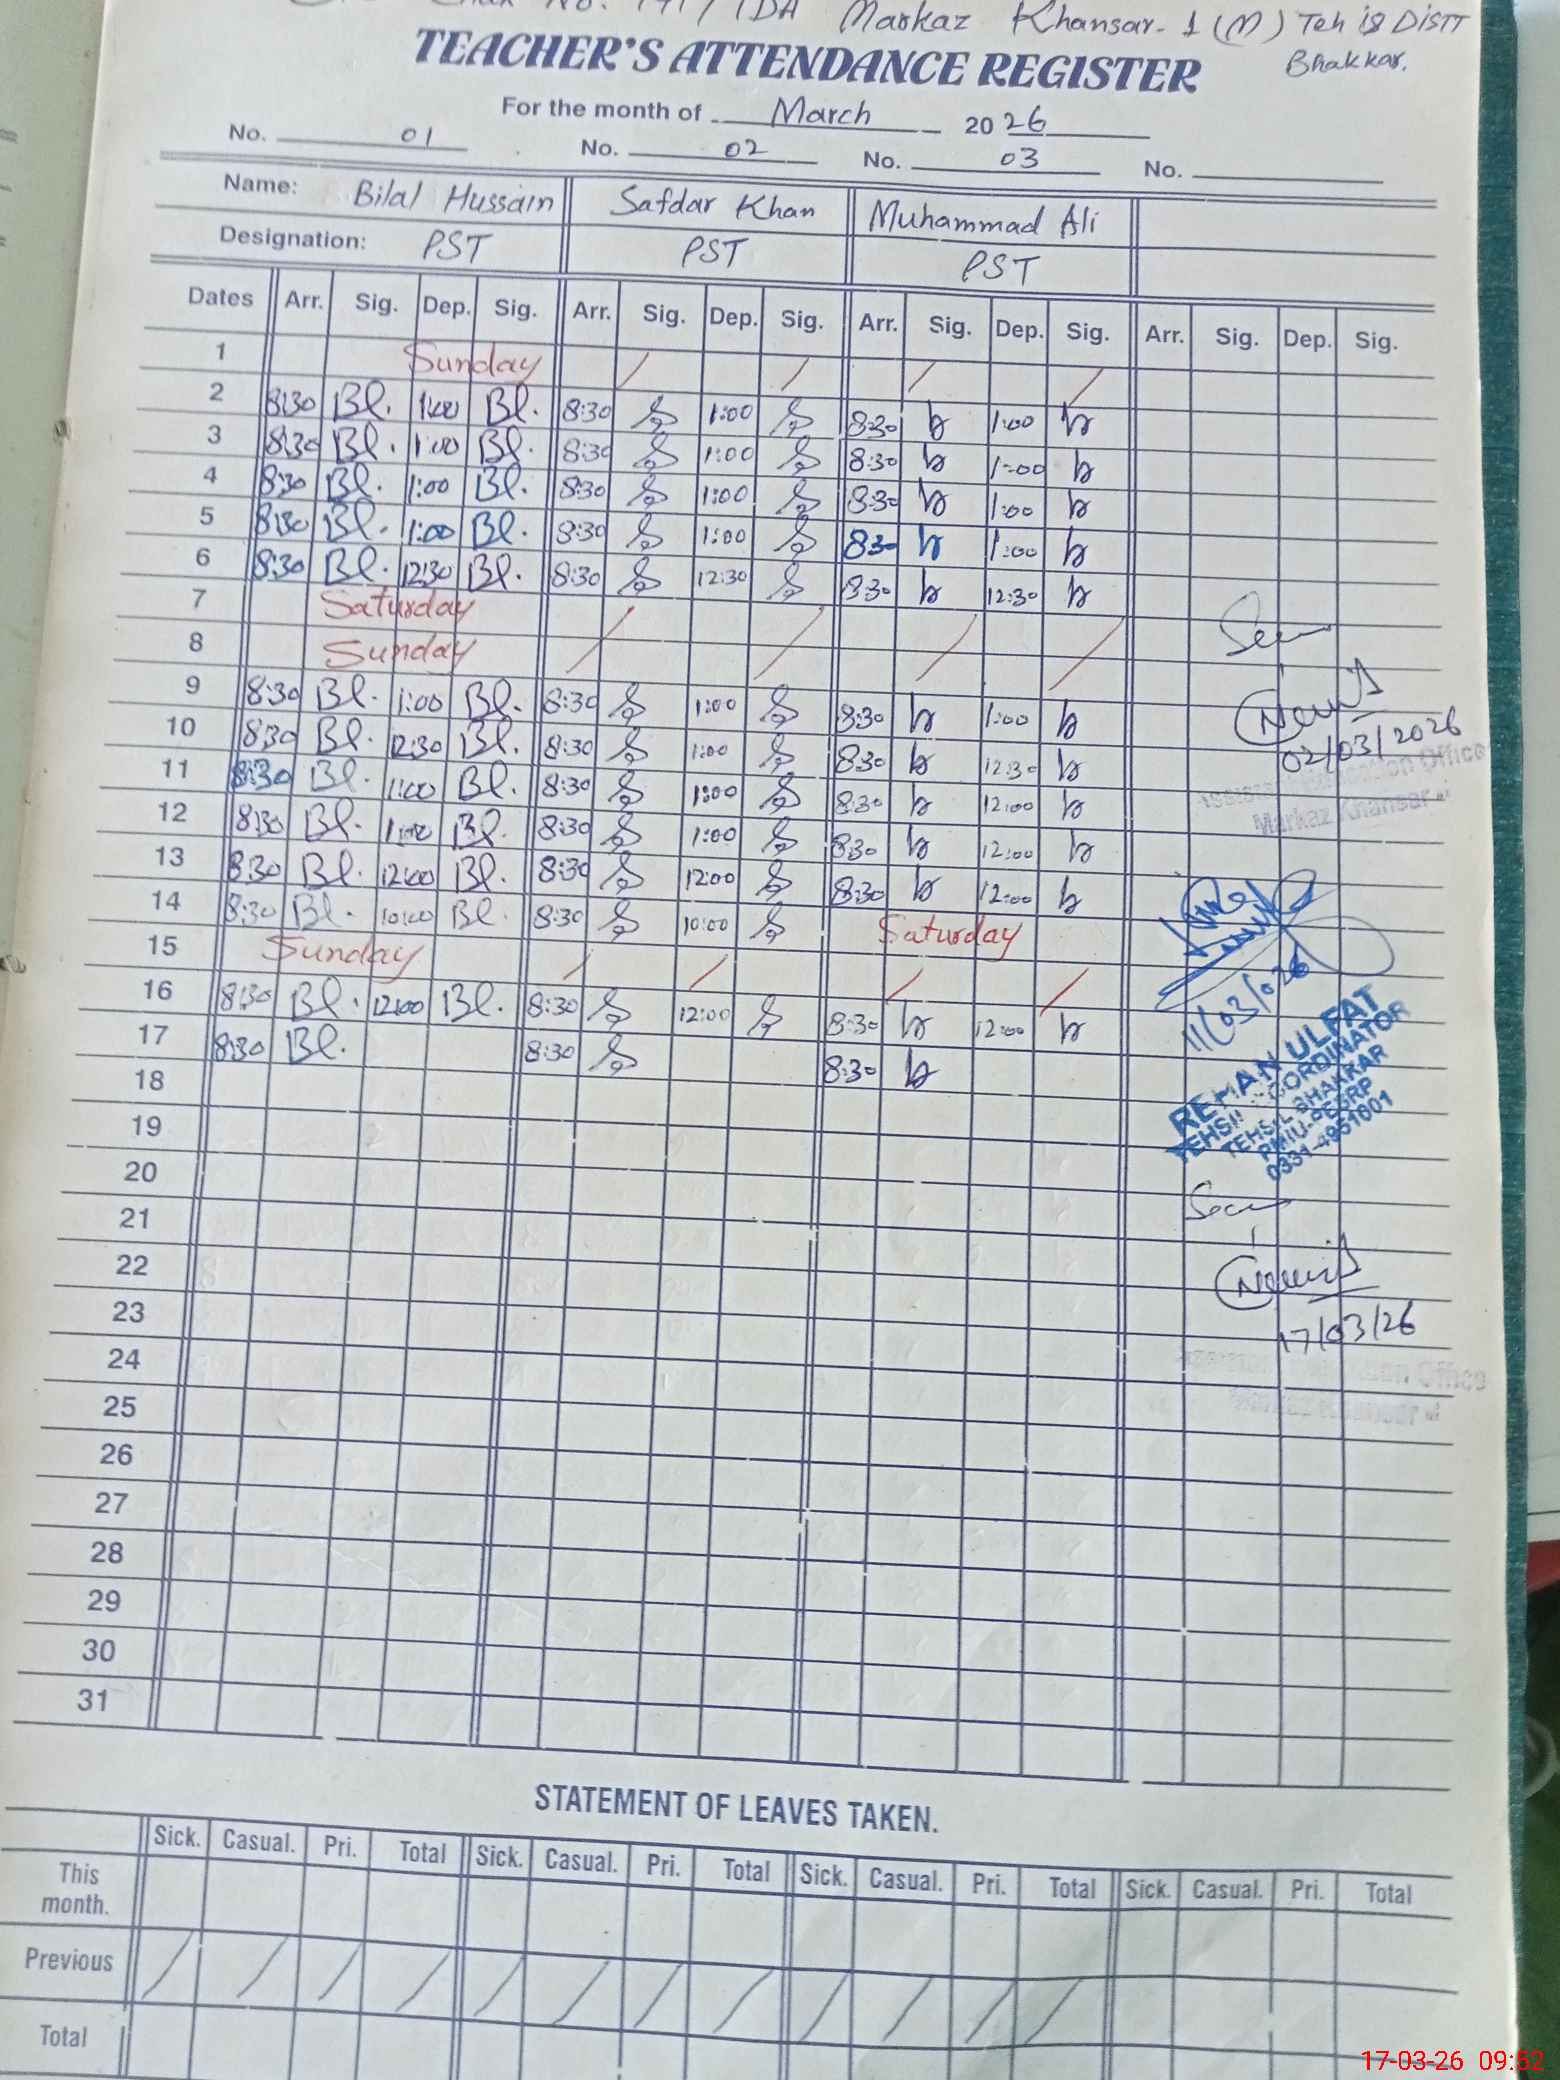 Chak No. TDA Markaz Khansar-1 (M) Teh & DISTT
Bhakkar.
TEACHER'S ATTENDANCE REGISTER
For the month of March 2026
No. 01 No. 02 No. 03 No.
Name: Bilal Hussain Safdar Khan Muhammad Ali
Designation: PST PST PST
Dates Arr. Sig. Dep. Sig. Arr. Sig. Dep. Sig. Arr. Sig. Dep. Sig. Arr. Sig. Dep. Sig.
1 Sunday
2 8:30 Bl. 1:00 Bl. 8:30 1:00 8:30 1:00
3 8:30 Bl. 1:00 Bl. 8:30 1:00 8:30 1:00
4 8:30 Bl. 1:00 Bl. 8:30 1:00 8:30 1:00
5 8:30 Bl. 1:00 Bl. 8:30 1:00 8:30 1:00
6 8:30 Bl. 12:30 Bl. 8:30 12:30 8:30 12:30
7 Saturday
8 Sunday
9 8:30 Bl. 1:00 Bl. 8:30 1:00 8:30 1:00
10 8:30 Bl. 12:30 Bl. 8:30 1:00 8:30 12:30
11 8:30 Bl. 1:00 Bl. 8:30 1:00 8:30 12:00
12 8:30 Bl. 1:00 Bl. 8:30 1:00 8:30 12:00
13 8:30 Bl. 12:00 Bl. 8:30 12:00 8:30 12:00
14 8:30 Bl. 10:00 Bl. 8:30 10:00 Saturday
15 Sunday
16 8:30 Bl. 12:00 Bl. 8:30 12:00 8:30 12:00
17 8:30 Bl. 8:30 8:30
18
19
20
21
22
23
24
25
26
27
28
29
30
31
Seen
02/03/2026
Education Office
Markaz Khansar
11/03/026
REHAN ULFAT
TEHSIL CORDINATOR
TEHSIL BHAKKAR
PMIU-PESRP
0331-4951001
Seen
17/03/26
Office
STATEMENT OF LEAVES TAKEN.
Sick. Casual. Pri. Total Sick. Casual. Pri. Total Sick. Casual. Pri. Total Sick. Casual. Pri. Total
This month.
Previous
Total
17-03-26 09:52